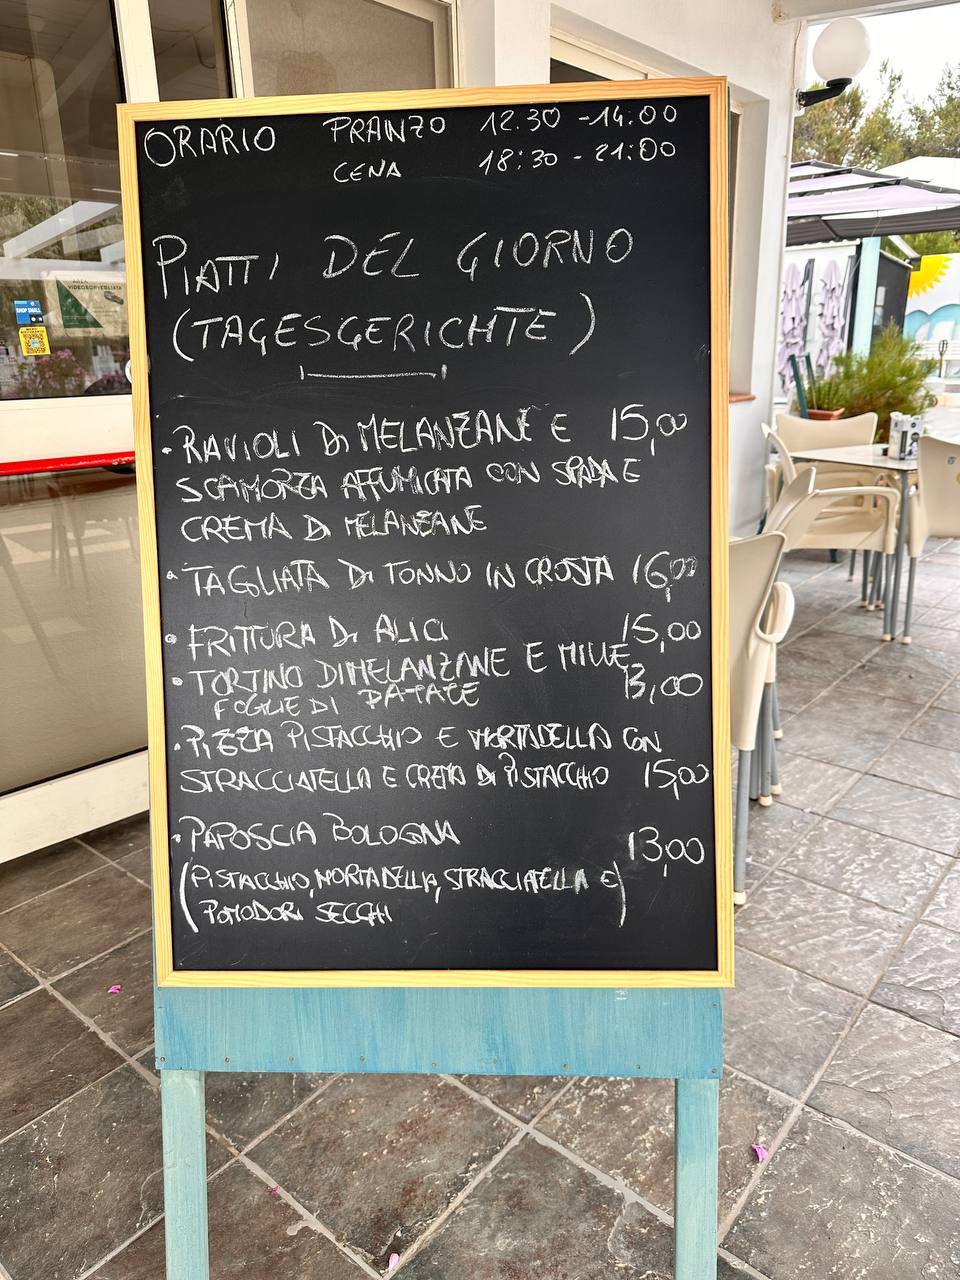 ORARIO PRANZO 12.30 - 14:00
CENA 18:30 - 21:00
PIATTI DEL GIORNO
(TAGESGERICHTE)
• RAVIOLI DI MELANZANE E 15,00
SCAMORZA AFFUMICATA CON SPADA E
CREMA DI MELANZANE
• TAGLIATA DI TONNO IN CROSTA 16,00
• FRITTURA DI ALICI 15,00
• TORTINO DI MELANZANE E MILLE
FOGLIE DI PATATE 13,00
• PIZZA PISTACCHIO E MORTADELLA CON
STRACCIATELLA E CREMA DI PISTACCHIO 15,00
• PAPOSCIA BOLOGNA 13,00
(PISTACCHIO, MORTADELLA, STRACCIATELLA E)
POMODORI SECCHI
AREA
VIDEOSORVEGLIATA
SHOP SMALL